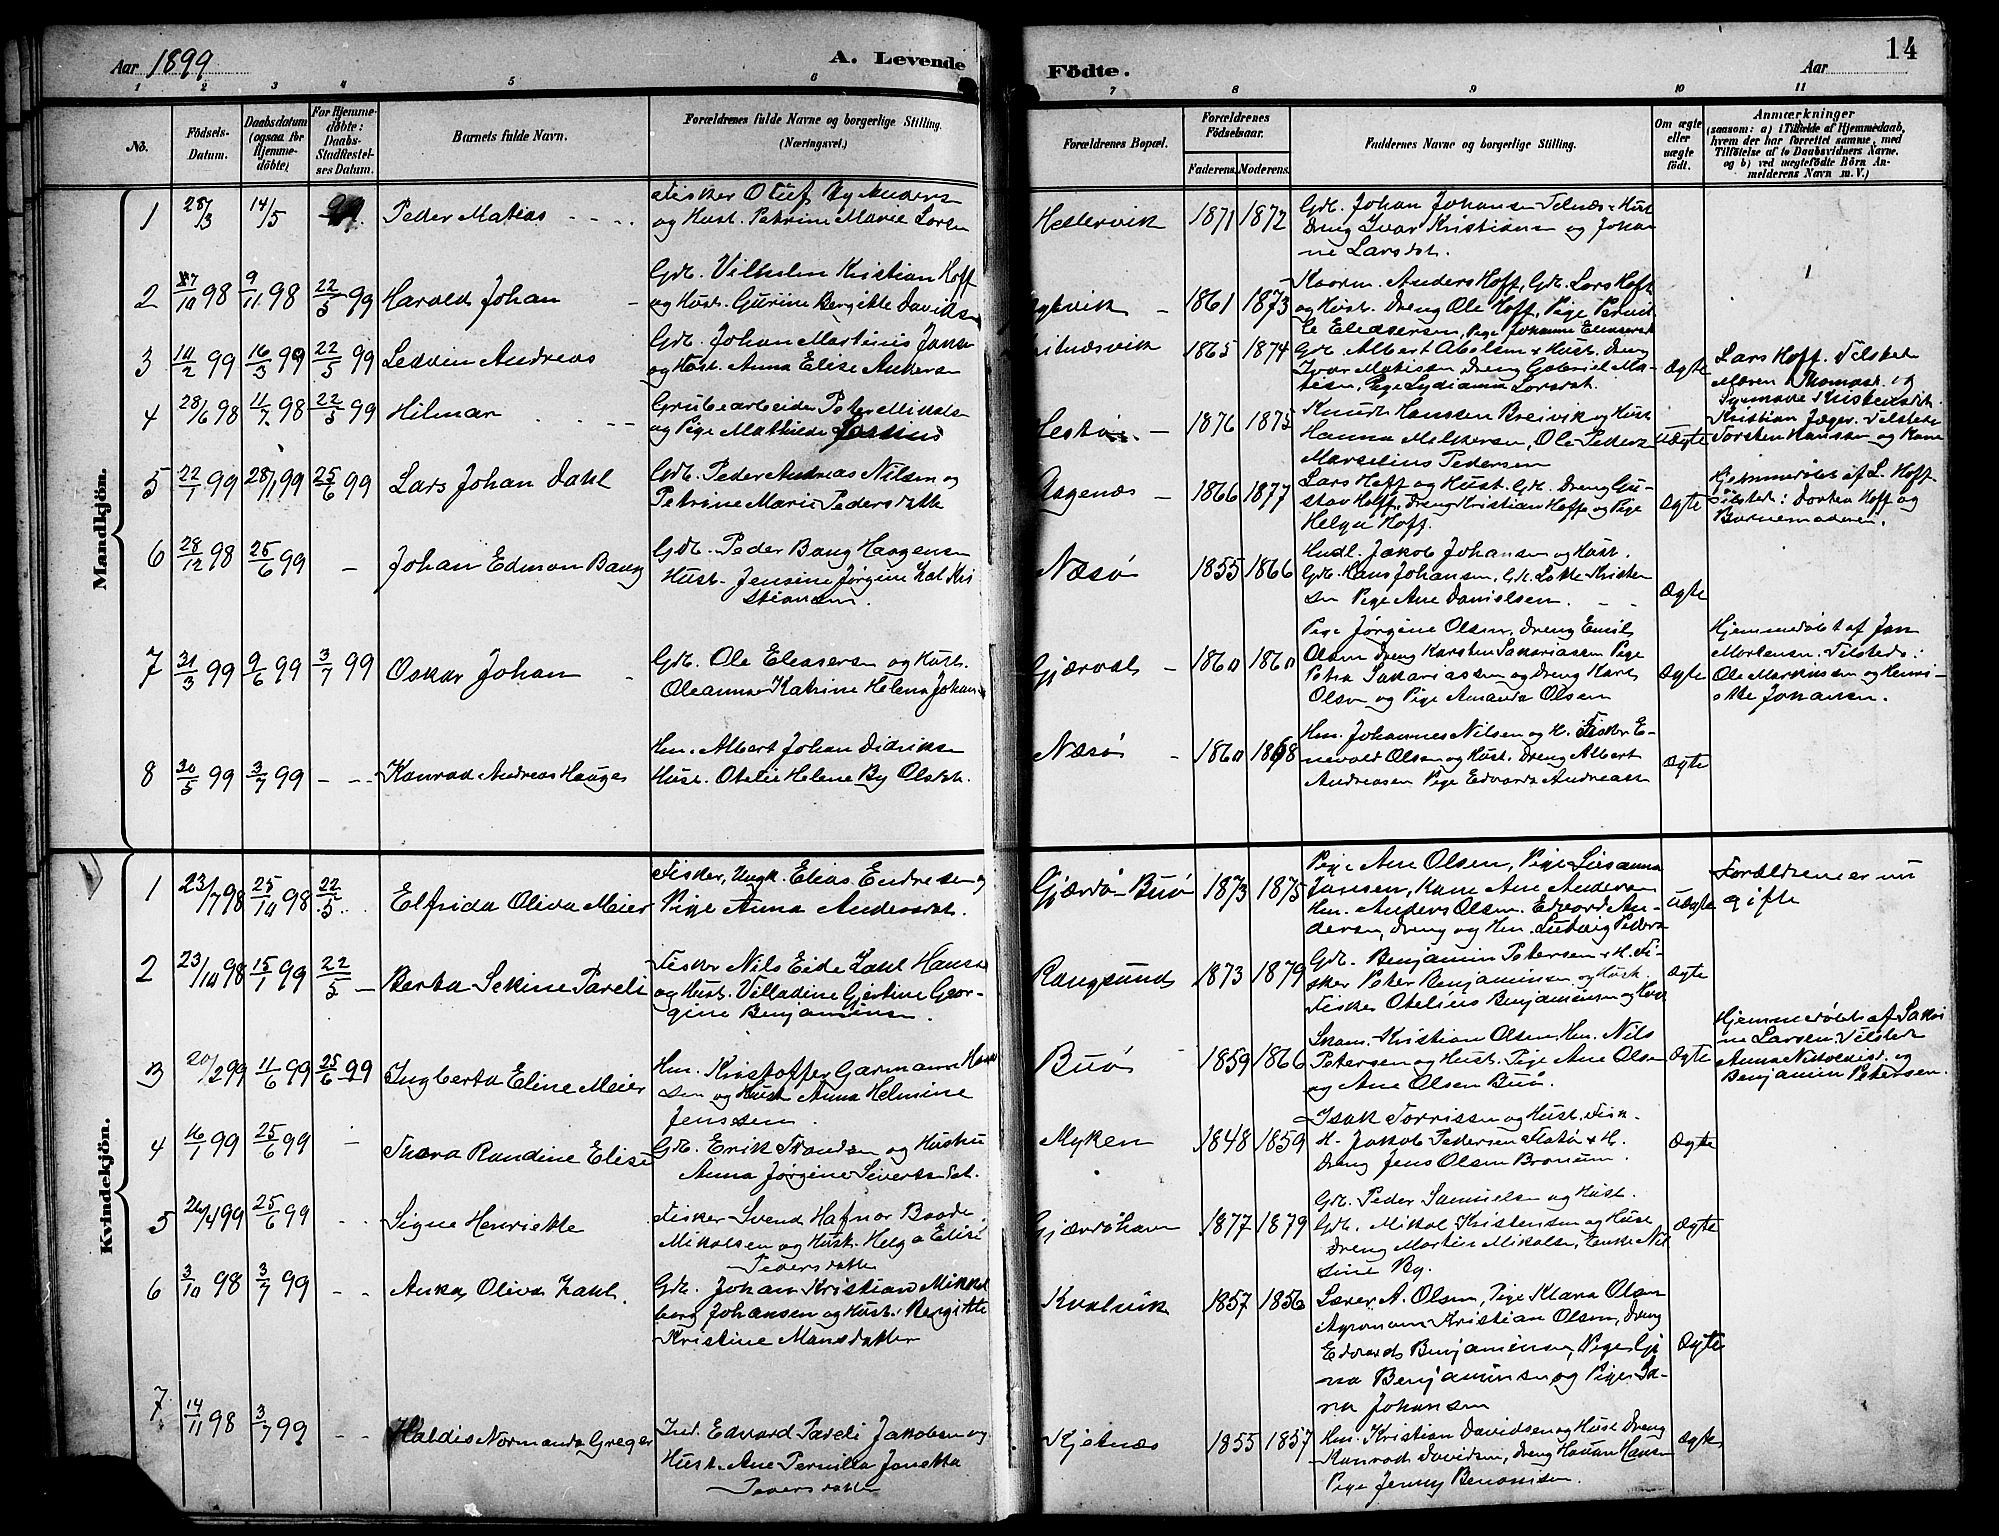 Aar 1899
A. Levende Födte.
Aar
14
1 2 3 4 5 6 7 8 9 10 11
No.
Födsels-
Datum.
Daabsdatum
(ogsaa for
Hjemme-
döbte)
For Hjemme-
döbte:
Daabs-
Stadfæstel-
ses Datum.
Barnets fulde Navn.
Forældrenes fulde Navne og borgerlige Stilling.
(Næringsvei.)
Forældrenes Bopæl.
Forældrenes
Födselsaar.
Faderens. Moderens.
Faddernes Navne og borgerlige Stilling.
Om ægte
eller
uægte
födt.
Anmærkninger
(saasom: a) i Tilfælde af Hjemmedaab,
hvem der har forrettet samme, med
Tilföielse af to Daabsvidners Navne,
og b) ved uægtefödte Börn An-
melderens Navn m. V.)
Mandkjön.
1 28/3 14/5 Peder Matias
Fisker Oluf By Anders
og Hust. Petrine Marie Loren
Hellervik 1871 1872
Gdb. Johan Johansen Selnæs + Hust
Dreng Ivar Kristiansen og Johan
ne Larsdat.
2 /10 98 9/11 98 22/5 99 Harald Johan
Gdb. Vilhelm Kristian Hoff
og Hust. Gurine Bergitte Daviks
1861 1873
Anders Hoff, Gdb. Lars Hoff
og Hust. Dreng Ole Hoff, Pige Pernil
le Eleasersen, Pige Johanne Eleasersd
3 /2 99 16/3 99 22/5 99 Ledvin Andreas
Gdb. Johan Martinus Jans
og Hust. Anna Elise Andersen
1865 1874
Gdb. Albert Abelsen + Hust. Dreng
Ivar Matisen Dreng Gabriel Ma-
tisen, Pige Lydianna Larsdat.
Ægte
Lars Hoff. Tilsted
Maren Thomasd. og
4 28/6 98 11/7 98 22/5 99 Hilmar
Grubearbeider Peter Mikals
og Pige Mathilde
1876 1875
Knudt Hanssen Breivik og Hust
Hanna Melkersen, Ole Peders
Marselius Pedersen
uægte
Kristian Jæger. Tilstede
Torsten Hanssen og Kone
5 22/1 99 28/1 99 25/6 99 Lars Johan Dahl
Gdb. Peder Andreas Nilsen og
Petrine Marie Pedersdatte
Aagenæs 1866 1877
Lars Hoff og Hust. Gdb. Dreng Gu-
stav Hoff, Dreng Kristian Hoff og Pige
Helga Hoff.
ægte
Hjemmedøbt af L. Hoff
Tilstede: Dorthea Hoff og
Barnemoderen.
6 28/12 98 25/6 99 – Johan Edmon Bang
Gdb. Peder Bang Haagensen
Hust. Jensine Jørgine Zal Kri
stiansen.
Næsø 1855 1866
Hndl. Jakob Johansen og Hust.
Gdb. Hans Johansen, Gdb. Lotte Kristen
sen Pige Ane Danielsen.
Ægte
7 31/3 99 9/6 99 3/7 99 Oskar Johan
Gdb. Ole Eleasersen og Hust.
Oleanna Katrine Helena Johan
Gjærvat 1860 1860
Pige Jørgine Olsen, Dreng Emil
Olsen Dreng Karsten Sakariassen Pige
Petra Sakariassen og Dreng Karl
Olsen og Pige Amanda Olsen
Ægte
Hjemmedøbt af Jan
Mortensen. Tilstede:
Ole Markussen og Henri-
ette Johansen.
8 30/5 99 3/7 99 Konrad Andreas Hauges
Hm. Albert Johan Didriksen
Hust. Otelie Helene By Olsdat.
Næsø 1860 1868
Hm. Johannes Nilsen og H. Fisker E-
nevald Olsen og Hust. Dreng Albert
Andreasen Pige Edvarda Andreasen
Ægte
Kvindekjön.
1 23/7 98 25/10 98 22/5 Elfrida Oliva Meier
Fisker, Ungk. Elias Endresen og
Pige Anna Andersdat.
Gjærdø Buø 1873 1875
Pige Ane Olsen, Pige Susanna
Jansen, Kone Ane Andersen
Hm. Anders Olsen. Edvard An-
dersen, Dreng og Hm. Ludvig Peders
uægte
Forældrene er nu
gifte
2 23/10 98 15/1 99 22/5 – Berta Sekine Pareli
Fisker Nils Eide Zahl Hans
og Hust. Villadine Gjertine Geor-
gine Benjaminsen.
Rangsund 1873 1879
Gdb. Benjamin Petersen + H. Fi-
sker Peter Benjaminsen og Hust.
Fisker Otelius Benjaminsen og Hust
Ægte
3 20/2 99 11/6 99 25/6 99 Ingberta Eline Meier
Hm. Kristoffer Garmann Han
sen og Hust Anna Helmine
Jenssen.
Buø 1859 1866
Kristian Olsen, Hm. Nils
Petersen og Hust. Pige Ane Olsen
og Ane Olsen Buø.
Ægte
Hjemmedøbt af Saki
ne Larsen. Tilstede
Anna Nikolaisd. og
Benjamin Petersen.
4 16/1 99 25/6 99 – Thora Randine Elise
Gdb. Erik Trondsen og Hustru
Anna Jørgine Sivertsdat.
Myken 1848 1859
Isak Torrissen og Hust. Fisk
H. Jakob Pedersen Flatø + H.
Dreng Jens Olsen Bronum.
Ægte
5 26/4 99 25/6 99 Signe Henriette
Fisker Svend Hafnor Baade
Mikalsen og Hust. Helga Elise
Pedersdatter
Gjærdøhavn 1877 1879
Gdb. Peder Samuelsen og Hust.
Gdb. Mikal Kristensen og Hust
Dreng Martin Mikalsen, Enke Nil
sine By.
Ægte
6 3/10 98 3/7 99 Anka Oliva Zahl.
Gdb. Johan Kristian Mikkel
borg Johansen og Hust. Bergitte
Kristine Mansdatter
Kvalvik 1857 1856
Lærer A. Olsen, Pige Klara Olsen
Agronom Kristian Olsen, Dreng
Edvard Benjaminsen, Pige Gi
na Benjaminsen og Pige La-
na Johansen
Ægte
7 14/11 98 3/7 99 Haldis Normanda Greger
Ind. Edvard Pareli Jakobsen og
Hust. Ane Pernilla Jonetta
Pedersdatter
Kjelnæs 1855 1857
Hm. Kristian Davidsen og Hust Dreng
Konrad Davidsen, Dreng Håvan Hansen
Pige Jenny Benonisen.
Ægte